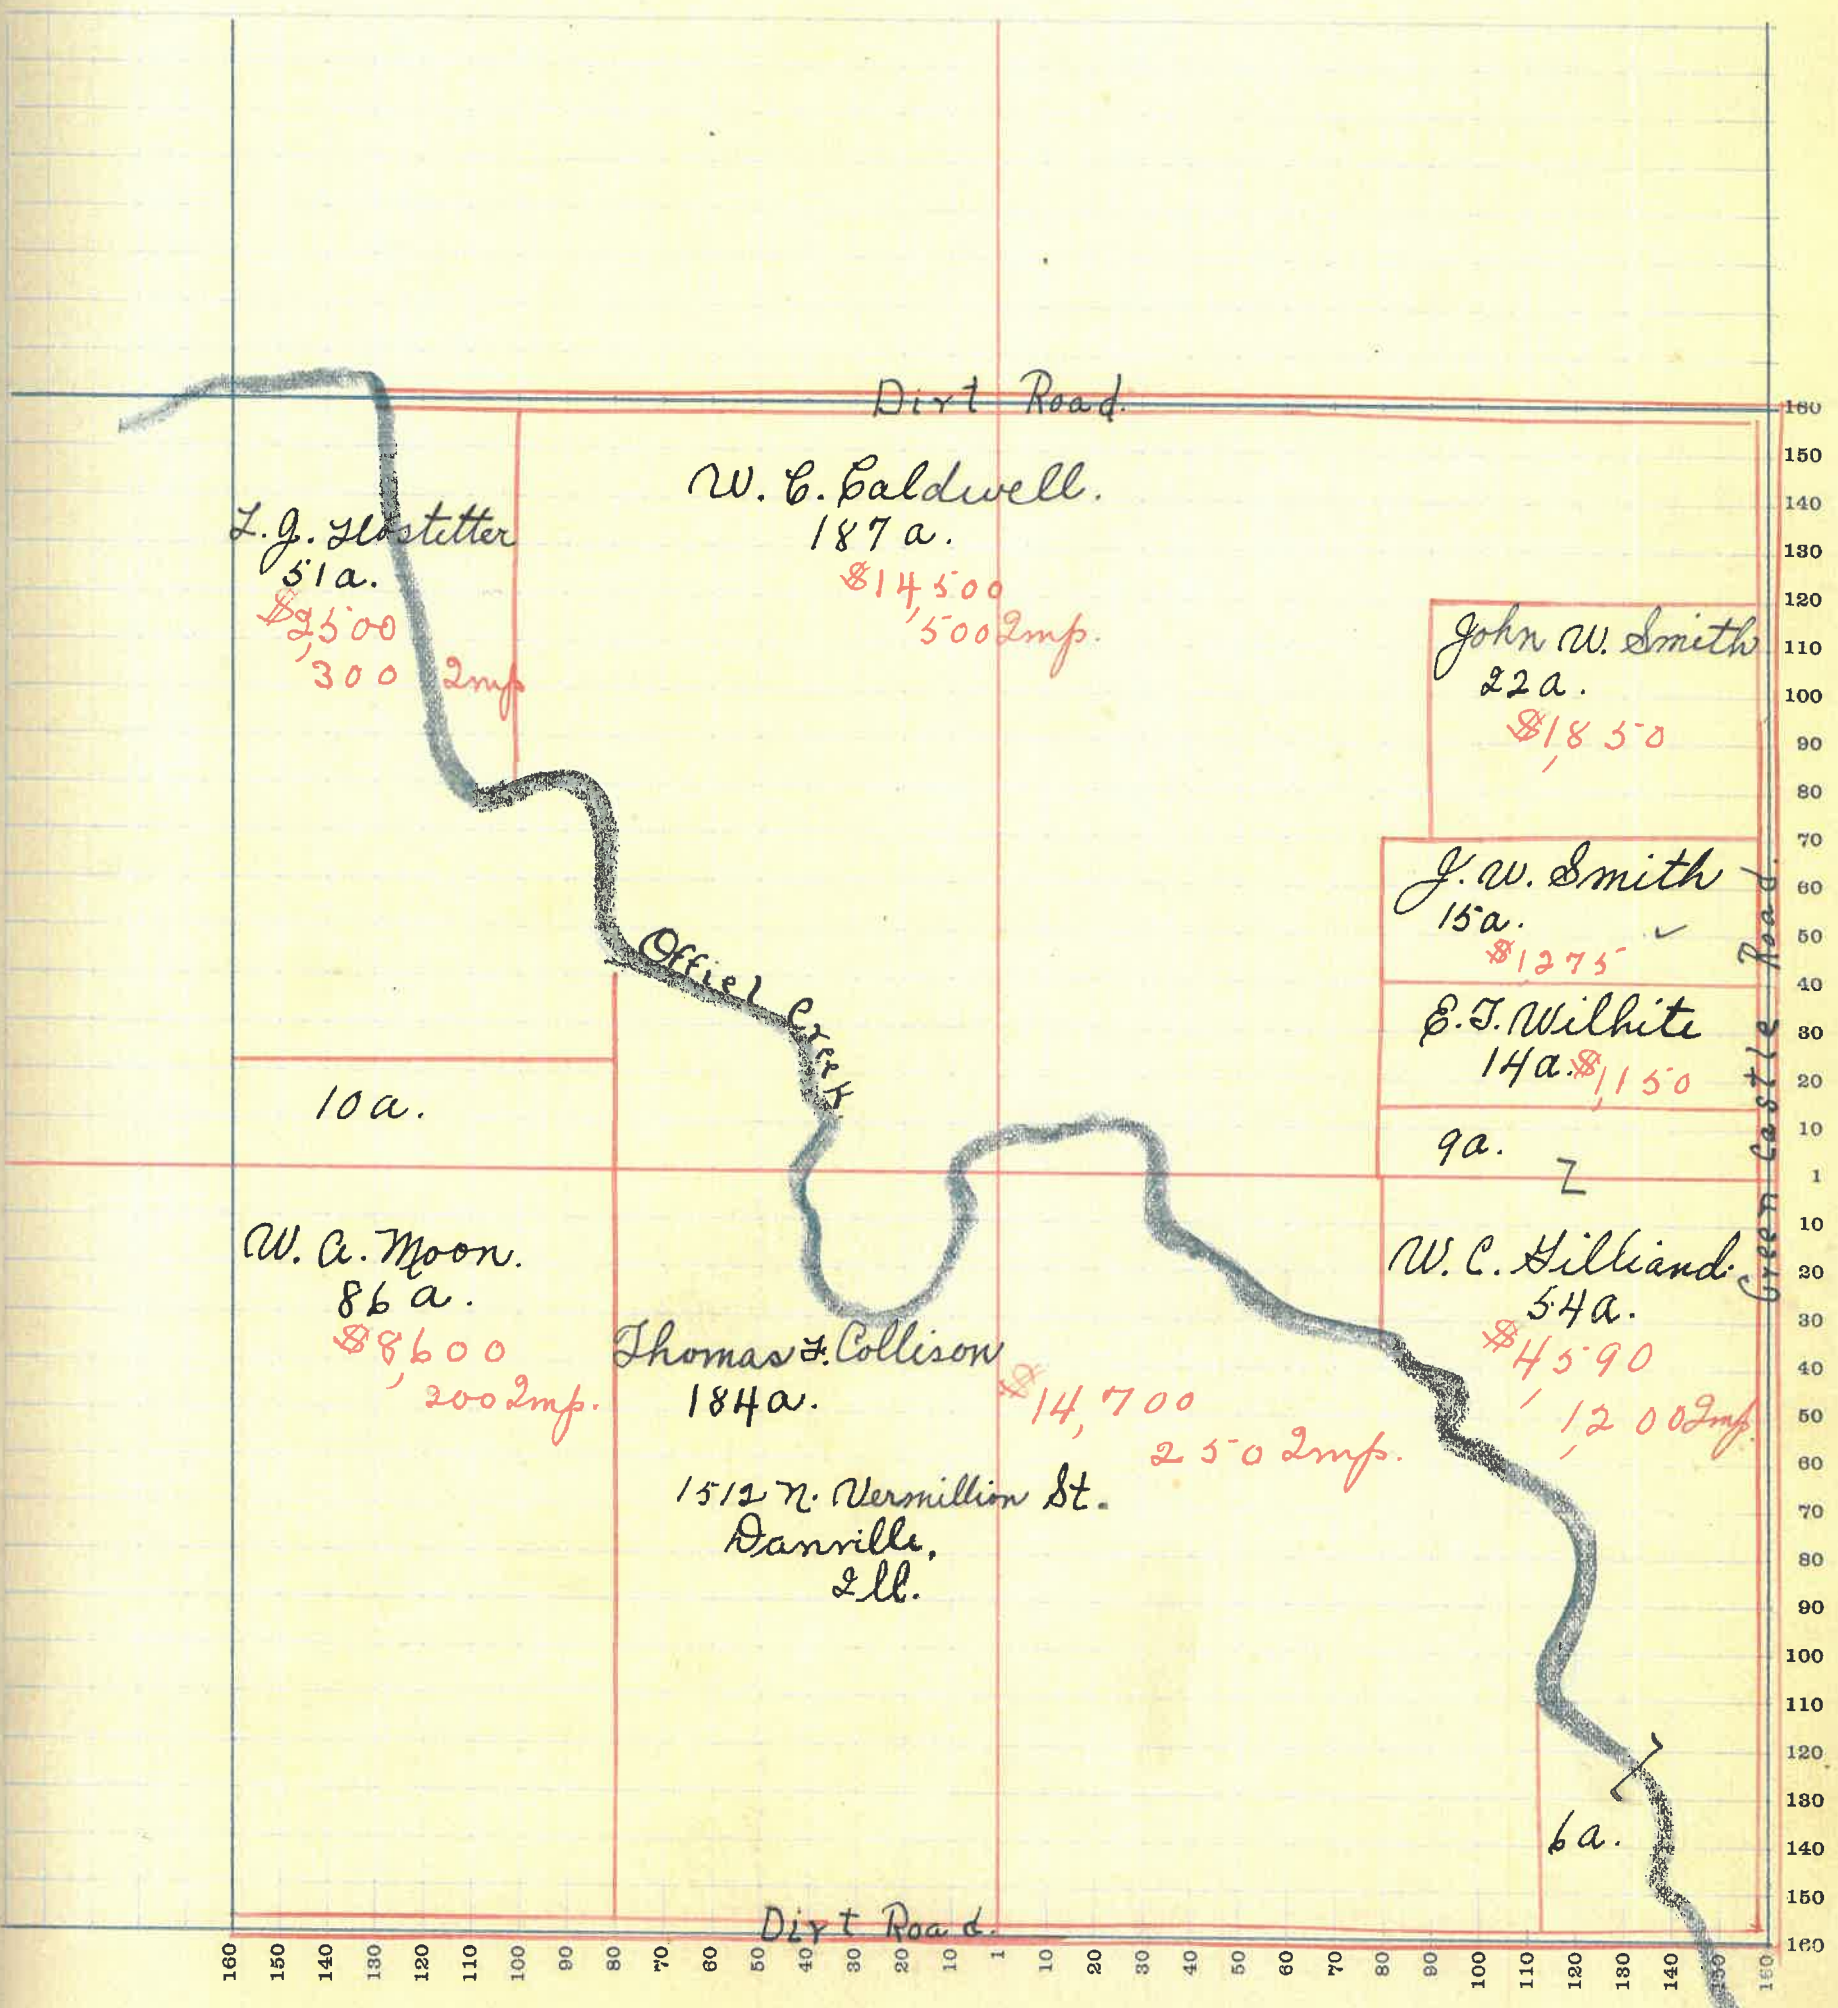 Dirt Road.
L. J. Hostetter
51a.
$2,500
300 Imp
W. C. Caldwell.
187a.
$14,500
500 Imp.
John W. Smith
22a.
$1,850
J. W. Smith
15a.
$1,275
E. T. Wilhite
14a. $1,150
9a.
Offiel Creek
10a.
W. A. Moon.
86a.
$8,600
200 Imp.
Thomas F. Collison
184a.
$14,700
250 Imp.
1512 N. Vermillion St.
Danville,
Ill.
W. C. Gilliand.
54a.
$4,590
1,200 Imp.
6a.
Green Castle Road.
Dirt Road.
160
150
140
130
120
110
100
90
80
70
60
50
40
30
20
10
1
10
20
30
40
50
60
70
80
90
100
110
120
130
140
150
160
160 150 140 130 120 110 100 90 80 70 60 50 40 30 20 10 1 10 20 30 40 50 60 70 80 90 100 110 120 130 140 150 160